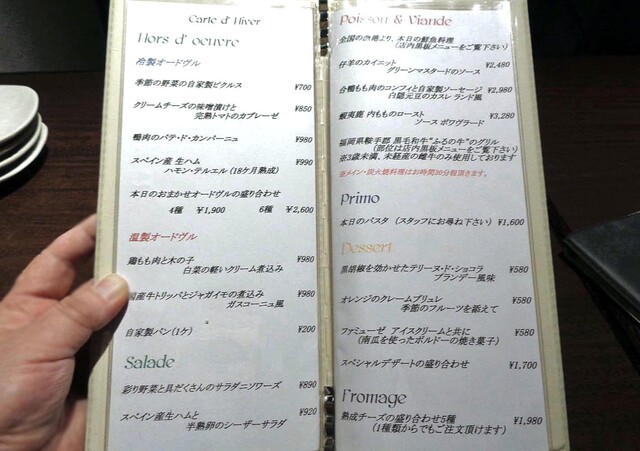 Carte d' Hiver
Hors d' oeuvre
冷製オードヴル
季節の野菜の自家製ピクルス ¥700
クリームチーズの味噌漬けと ¥850
完熟トマトのカプレーゼ
鴨肉のパテ・ド・カンパーニュ ¥980
スペイン産 生ハム ¥990
ハモン・テルエル (18ケ月熟成)
本日のおまかせオードヴルの盛り合わせ
4種 ¥1,900 6種 ¥2,600
温製オードヴル
鶏もも肉と木の子 ¥980
白菜の軽いクリーム煮込み
国産牛トリッパとジャガイモの煮込み ¥980
ガスコーニュ風
自家製パン(1ケ) ¥200
Salade
彩り野菜と具だくさんのサラダニソワーズ ¥890
スペイン産生ハムと ¥920
半熟卵のシーザーサラダ
Poisson & Viande
全国の漁港より、本日の鮮魚料理
(店内黒板メニューをご覧下さい)
仔羊のカイエット ¥2,480
グリーンマスタードのソース
合鴨もも肉のコンフィと自家製ソーセージ ¥2,980
白隠元豆のカスレ ランド風
蝦夷鹿 内もものロースト ¥3,280
ソース ポワヴラード
福岡県鞍手郡 黒毛和牛“ふるの牛”のグリル
(部位は店内黒板メニューをご覧下さい)
※3歳未満、未経産の雌牛のみ使用しております
※メイン・炭火焼料理はお時間30分程頂きます。
Primo
本日のパスタ (スタッフにお尋ね下さい) ¥1,600
Dessert
黒胡椒を効かせたテリーヌ・ド・ショコラ ¥580
ブランデー風味
オレンジのクレームブリュレ ¥580
季節のフルーツを添えて
ファミューゼ アイスクリームと共に ¥580
(南瓜を使ったボルドーの焼き菓子)
スペシャルデザートの盛り合わせ ¥1,700
Fromage
熟成チーズの盛り合わせ5種 ¥1,980
(1種類からでもご注文頂けます)